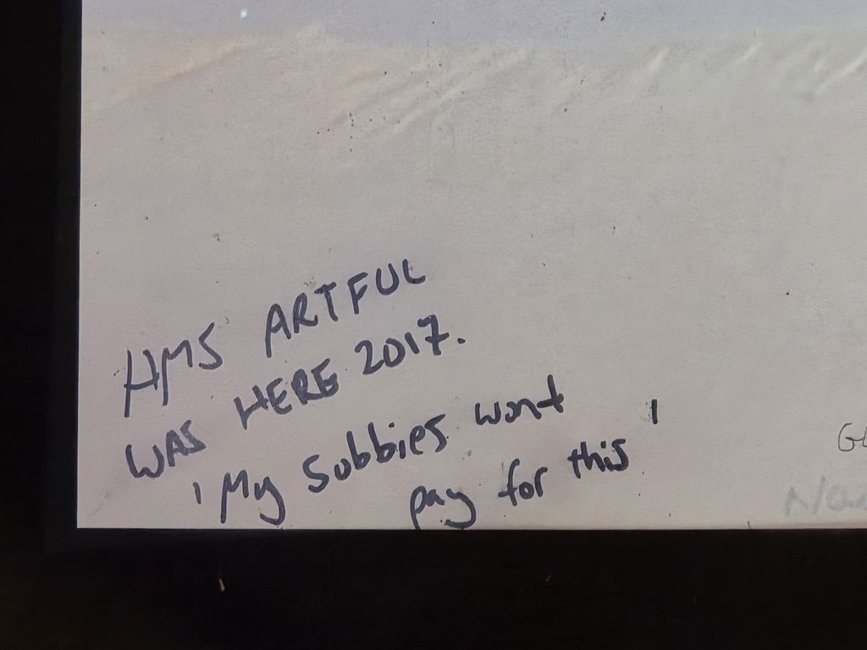 HMS ARTFUL
WAS HERE 2017.
'My subbies wont
pay for this'